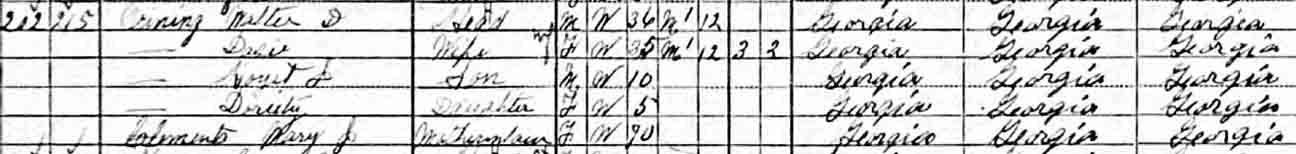 202 215 Orining Walter D Head M W 36 M1 12 Georgia Georgia Georgia
— Wife F W 35 M1 12 3 2 Georgia Georgia Georgia
— Son M W 10 Georgia Georgia Georgia
— Daughter F W 5 Georgia Georgia Georgia
Mary J Motherinlaw F W 70 Georgia Georgia Georgia